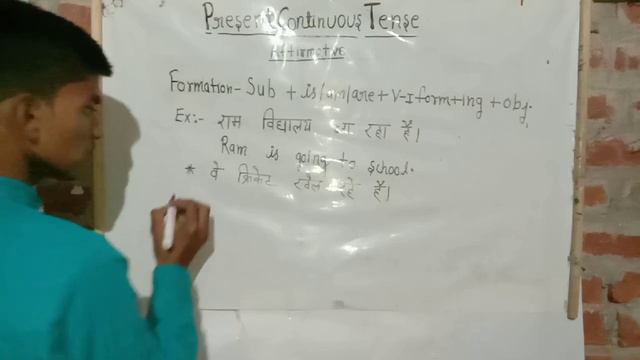 Present Continuous Tense
Affirmative
Formation- Sub + is/am/are + V-I form+ing + obj.
Ex:- राम विद्यालय जा रहा है।
Ram is going to school.
* वे क्रिकेट खेल रहे हैं।